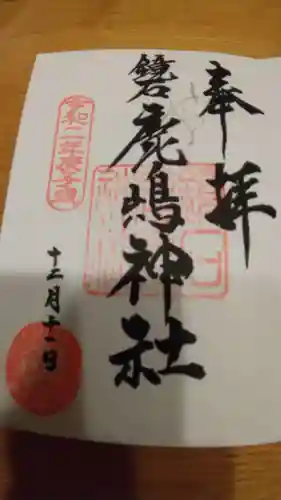 奉拝
鐃鹿嶋神社
令和二年庚子歳
十二月十一日